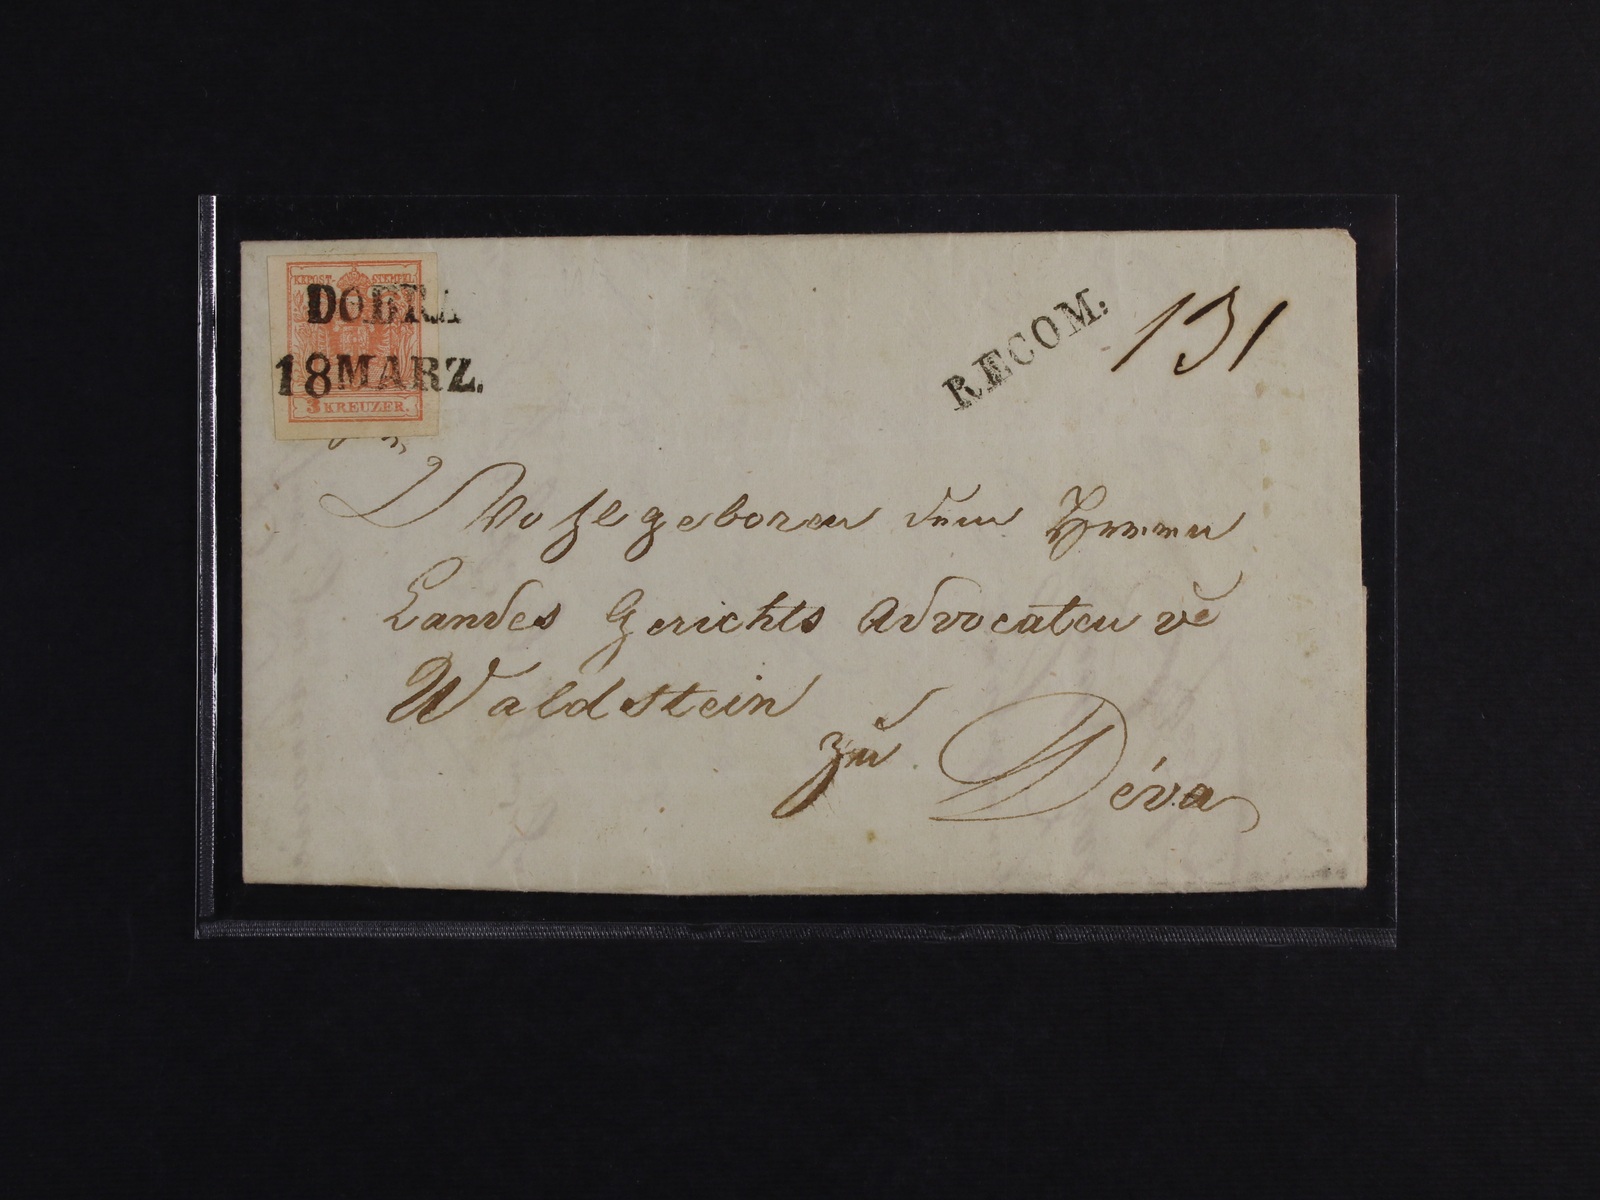 KKPOST-STEMPEL
DOBRA
18 MARZ.
3 KREUZER.
RECOM: 131
Wohlgeboren dem Herrn
Landes Gerichts Advocaten v
Waldstein
zu Déva